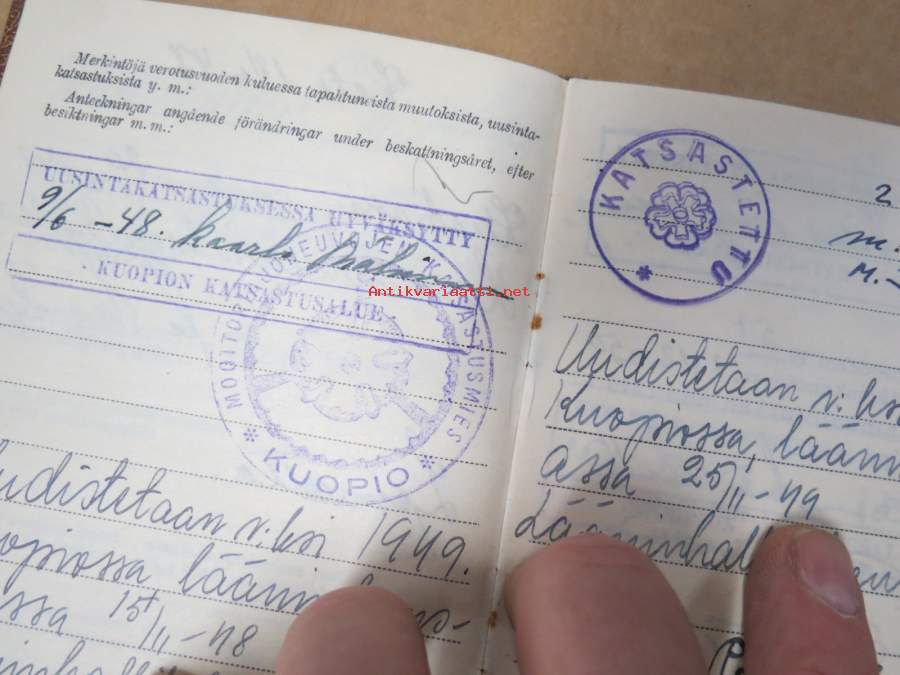 Merkintöjä verotusvuoden kuluessa tapahtuneista muutoksista, uusinta-
katsastuksista y. m.:
Anteckningar angående förändringar under beskattningsåret, efter
besiktningar m. m.:
UUSINTAKATSASTUKSESSA HYVÄKSYTTY
9/6 -48. Kaarlo
KUOPION KATSASTUSALUE
MOOTTORIAJONEUVOJEN KATSASTUSMIES
* KUOPIO *
Antikvariaatti.net
udistetaan v:ksi 1949.
uopiossa, lääninh
ssa 15/II-48
KATSASTETTU *
2
m.
M.
Uudistetaan v:ksi
Kuopiossa, läänin
assa 25/II-49
Lääninhal